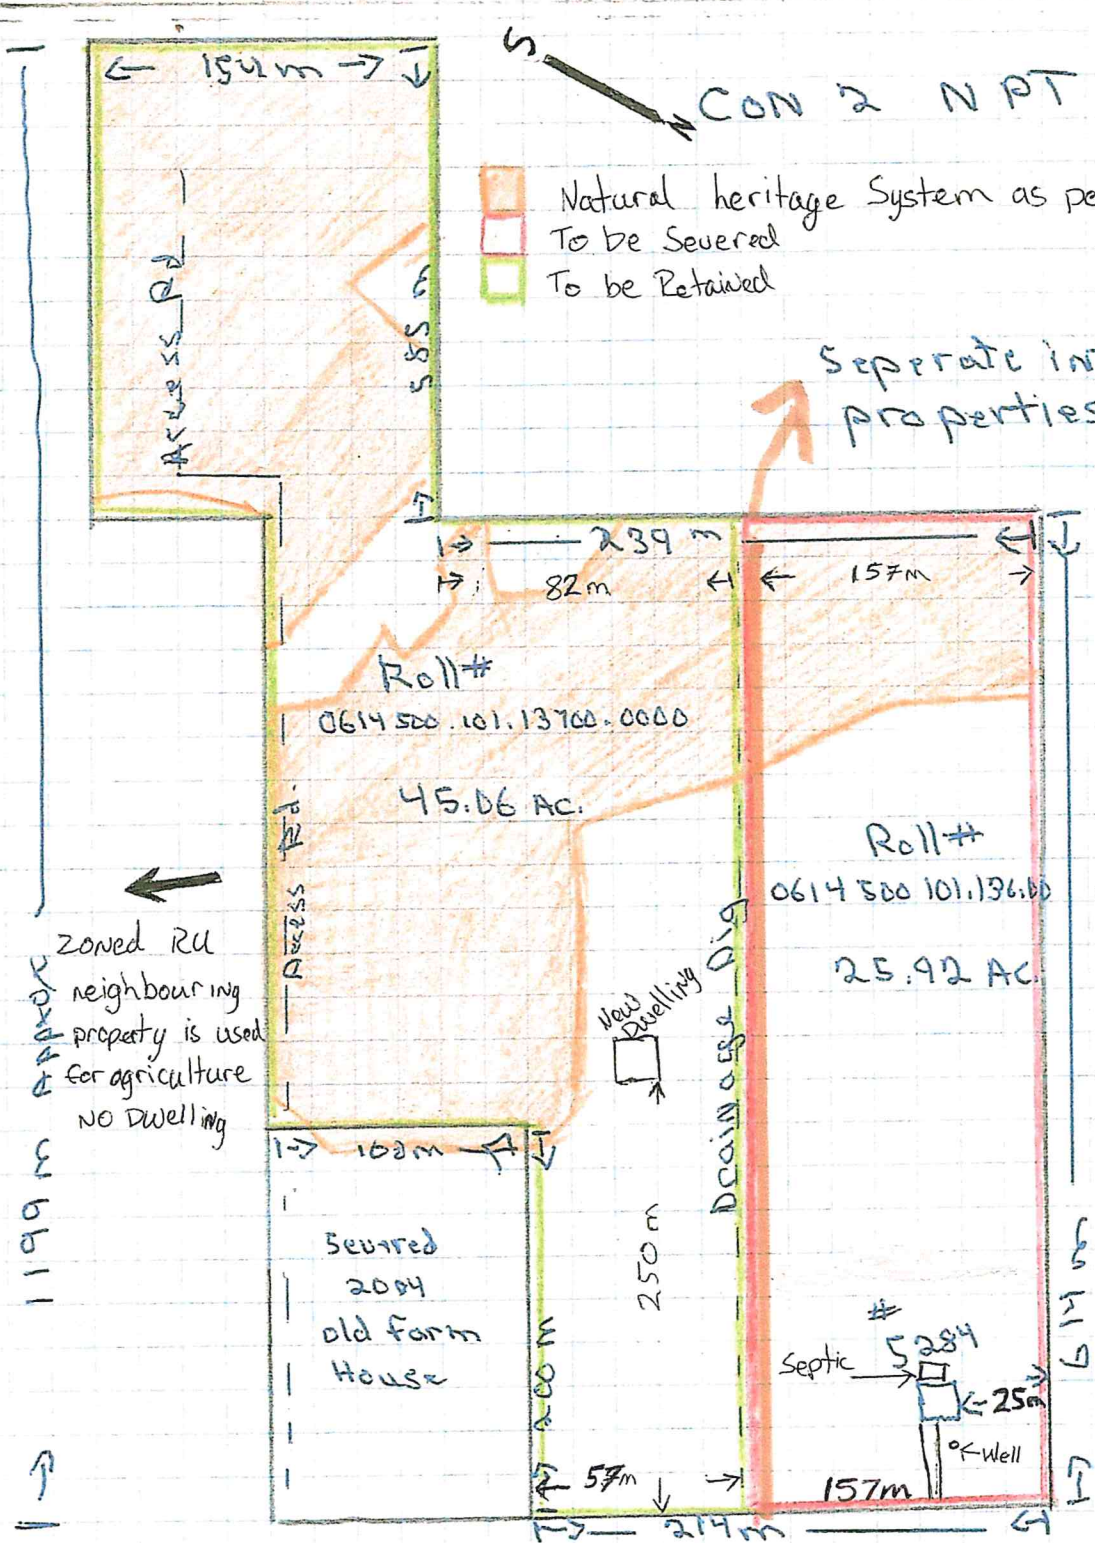 154m
S
CON 2 N PT
Natural heritage System as pe
To be Severed
To be Retained
Access Rd
585 m
Seperate in
properties
239 m
82m
157m
Roll#
0614 500.101.13700.0000
45.06 AC.
Roll#
0614 500 101.136.00
25.92 AC.
Access Rd.
Zoned RU
neighbouring
property is used
for agriculture
NO Dwelling
1199 m Approx
New
Dwelling
Drainage Dig
Severed
2004
old farm
House
250 m
200 m
#
5284
Septic
25m
Well
57m
157m
214m